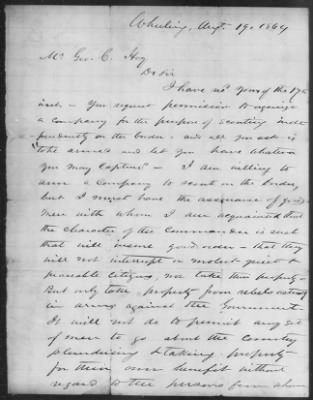 Wheeling, Augt. 19. 1864
Mr Geo. C. Hoy
Dr Sir
I have recd yours of the 17th
inst. - You request permission to organize
a company for the purpose of scouting inde
pendently on the border - and all you ask is
to be armed and let you have whatever
you may capture" - I am willing to
arm a company to scout on the border,
but I must have the assurance of good
men with whom I am acquainted that
the character of the Commander is such
that will insure good order - that they
will not interrupt or molest quiet &
peaceable citizens, nor take their property -
But only take property from rebels
in arms against the Government.
It will not do to permit any set
of men to go about the Country
plundering & taking property
for their own benefit without
regard to the persons from whom